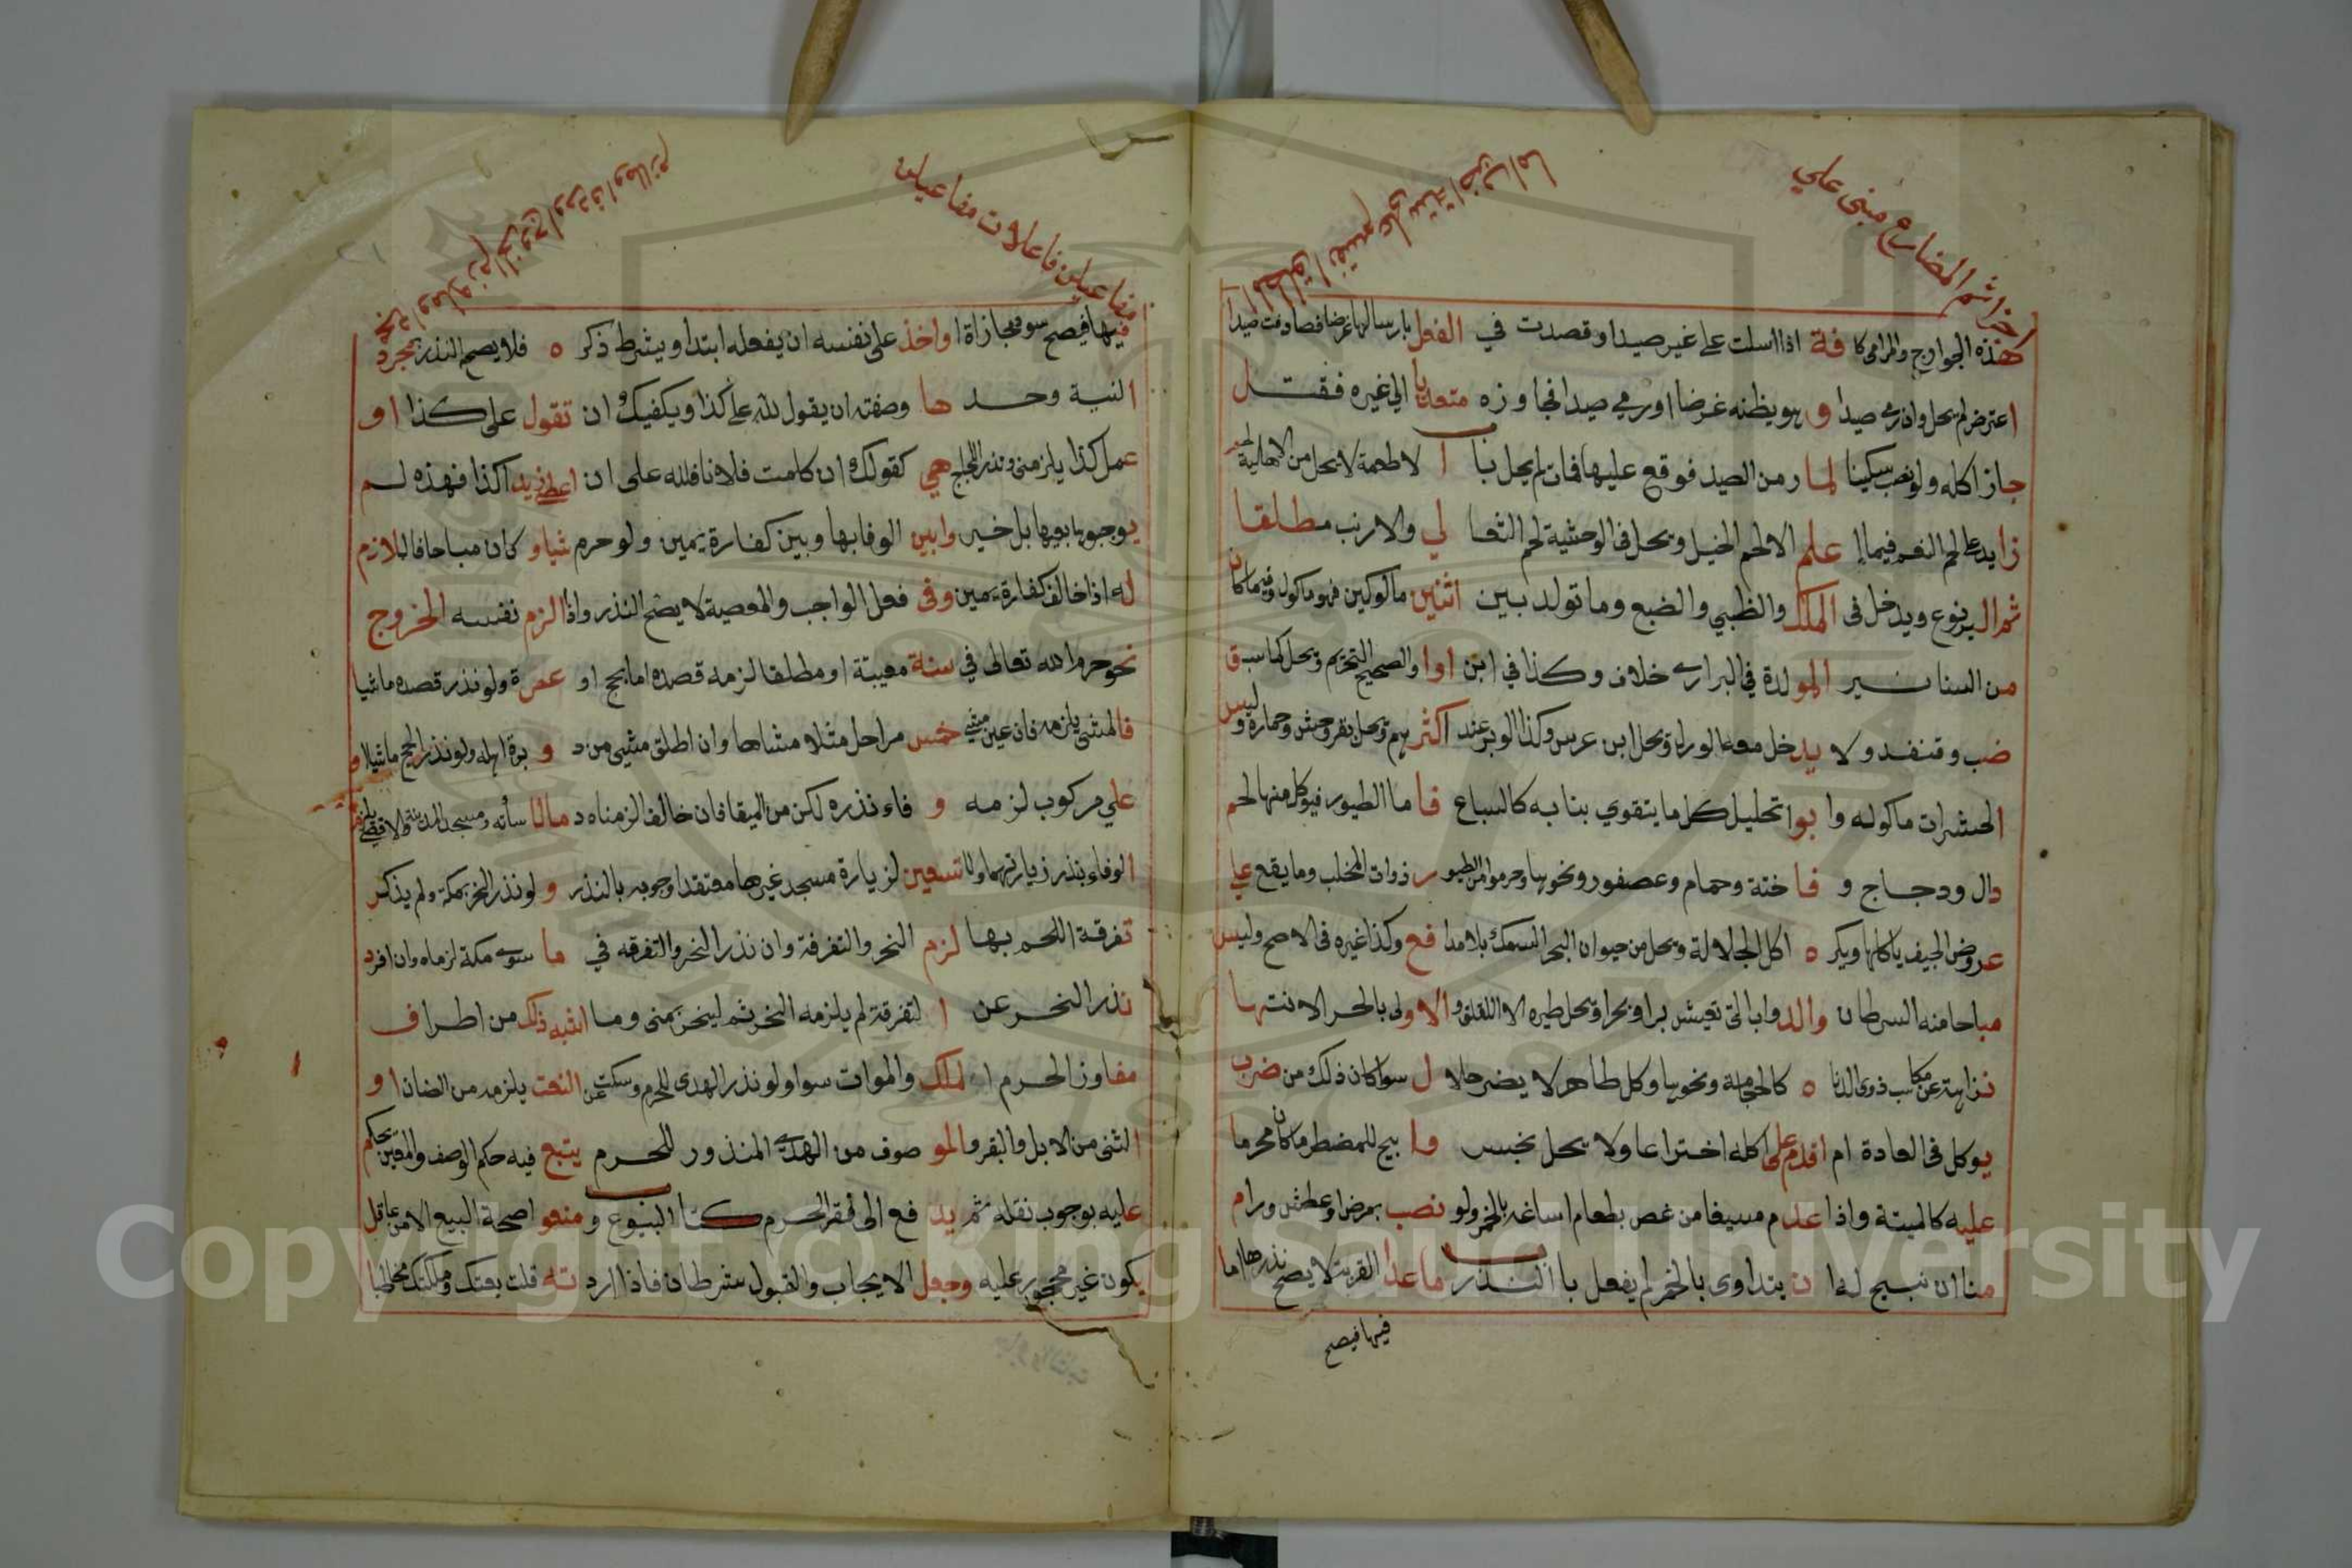 ثم المضارع مبني على
هذه الجوارح والمرامي كافة اذا ارسلت على غير صيد او قصدت في الفعل بارسالها غرضا فصادفت صيدا
اعترض لم يحل وان رمى صيدا وهو يظنه غرضا او رمى صيدا فجاوزه متعديا الى غيره فقتل
جاز اكله ولو نصب سكينا لمار من الصيد فوقع عليها فمات لم يحل باب الاطعمة لا يحل من الاهلية
زايد على لحم النعم فيما علم الا لحم الخيل ويحل في الوحشية لحم الثعالي والارنب مطلقا
ثم اليربوع ويدخل في الملك والظبي والضبع وما تولد بين اثنين ماكولين فهو ماكول وفيما كان
من السنانير المولدة في البراري خلاف وكذا في ابن اوا والصحيح التحريم ويحل كما سبق
ضب وقنفد ولا يدخل معها الورل ويحل ابن عرس وكذا الوبر عند اكثرهم ويحل بقر وحش وحماره وليس
الحشرات ماكوله وابوا تحليل كل ما يتقوي بنابه كالسباع فاما الطيور فيوكل منها لحم
دال ودجاج وفاختة وحمام وعصفور ونحوها وحرموا من الطيور ذوات المخلب وما يقع على
عروض الجيف ياكلها ويكره اكل الجلالة ويحل من حيوان البحر السمك بلا مدافع وكذا غيره في الاصح وليس
مباحا منه السرطان والدواب التي تعيش برا وبحرا ويحل طيره الا اللقلق والاولى بالحر الانتها
نزاهة عن مكاسب ذوي الدناه كالحجامة ونحوها وكل طاهر لا يضر حلال سواء كان ذلك من ضرب
يوكل في العادة ام اقدم على اكله اختراعا ولا يحل نجس وابيح للمضطر ما كان محرما
عليه كالميتة واذا عدم مسيغا من غص بطعام اساغه بالخمر ولو نصب بمرض او عطش ورام
منا ان نبيح له ان يتداوى بالخمر لم يفعل باب النذر ما عدا القرب لا يصح نذرها اما
فيها فيصح
مفاعيلن فاعلات مفاعيلن
فيها فيصح سوا مجازاة او اخذ على نفسه ان يفعله ابتدا ويشرط ذكره فلا يصح النذر بمجرد
النية وحدها وصفته ان يقول لله علي كذا ويكفيك ان تقول على كذا او
عمل كذا يلزمني ونذر اللجاج هي كقولك ان كلمت فلانا فلله على ان اعطي زيدا كذا فهذه لم
يوجبوها بعينها بل خير وابين الوفا بها وبين كفارة يمين ولو حرم شيا وكان مباحا فاللازم
له اذا خالف كفارة يمين وفي فعل الواجب والمعصية لا يصح النذر واذا الزم نفسه الخروج
نحو حرم الله تعالى في سنة معينة او مطلقا لزمه قصده اما بحج او عمرة ولو نذر قصده ماشيا
فالمشي يلزمه فان عين مشي خمس مراحل مثلا مشاها وان اطلق مشى من دويرة اهله ولو نذر الحج ماشيا او
علي مركوب لزمه وفاء نذره لكن من الميقات فان خالف الزمناه دما لاساته ومسجد المدينة والاقصى يلزم
الوفاء بنذر زيارتهما ولا تسعين لزيارة مسجد غيرها معتقدا وجوبه بالنذر ولو نذر النحر بمكة ولم يذكر
تفرقة اللحم بها لزم النحر والتفرقة وان نذر النحر والتفرقه في ما سوى مكة لزماه وان افرد
نذر النحر عن التفرقة لم يلزمه النحر ثم لينحر بمنى وما اشبه ذلك من اطراف
مفاوز الحرم الملك والموات سوا ولو نذر الهدي للحرم وسكت عن النعت يلزمه من الضان او
الثني من الابل والبقر والموصوف من الهدي المنذور للحرم يتبع فيه حكم الوصف والمعين يحكم
عليه بوجوب نقله ثم يدفع الى فقر الحرم كتاب البيوع ومنعوا صحة البيع الا من عاقل
يكون غير محجور عليه وجعل الايجاب والقبول شرطان فاذا اردته قلت بعتك وملكتك مخاطبا